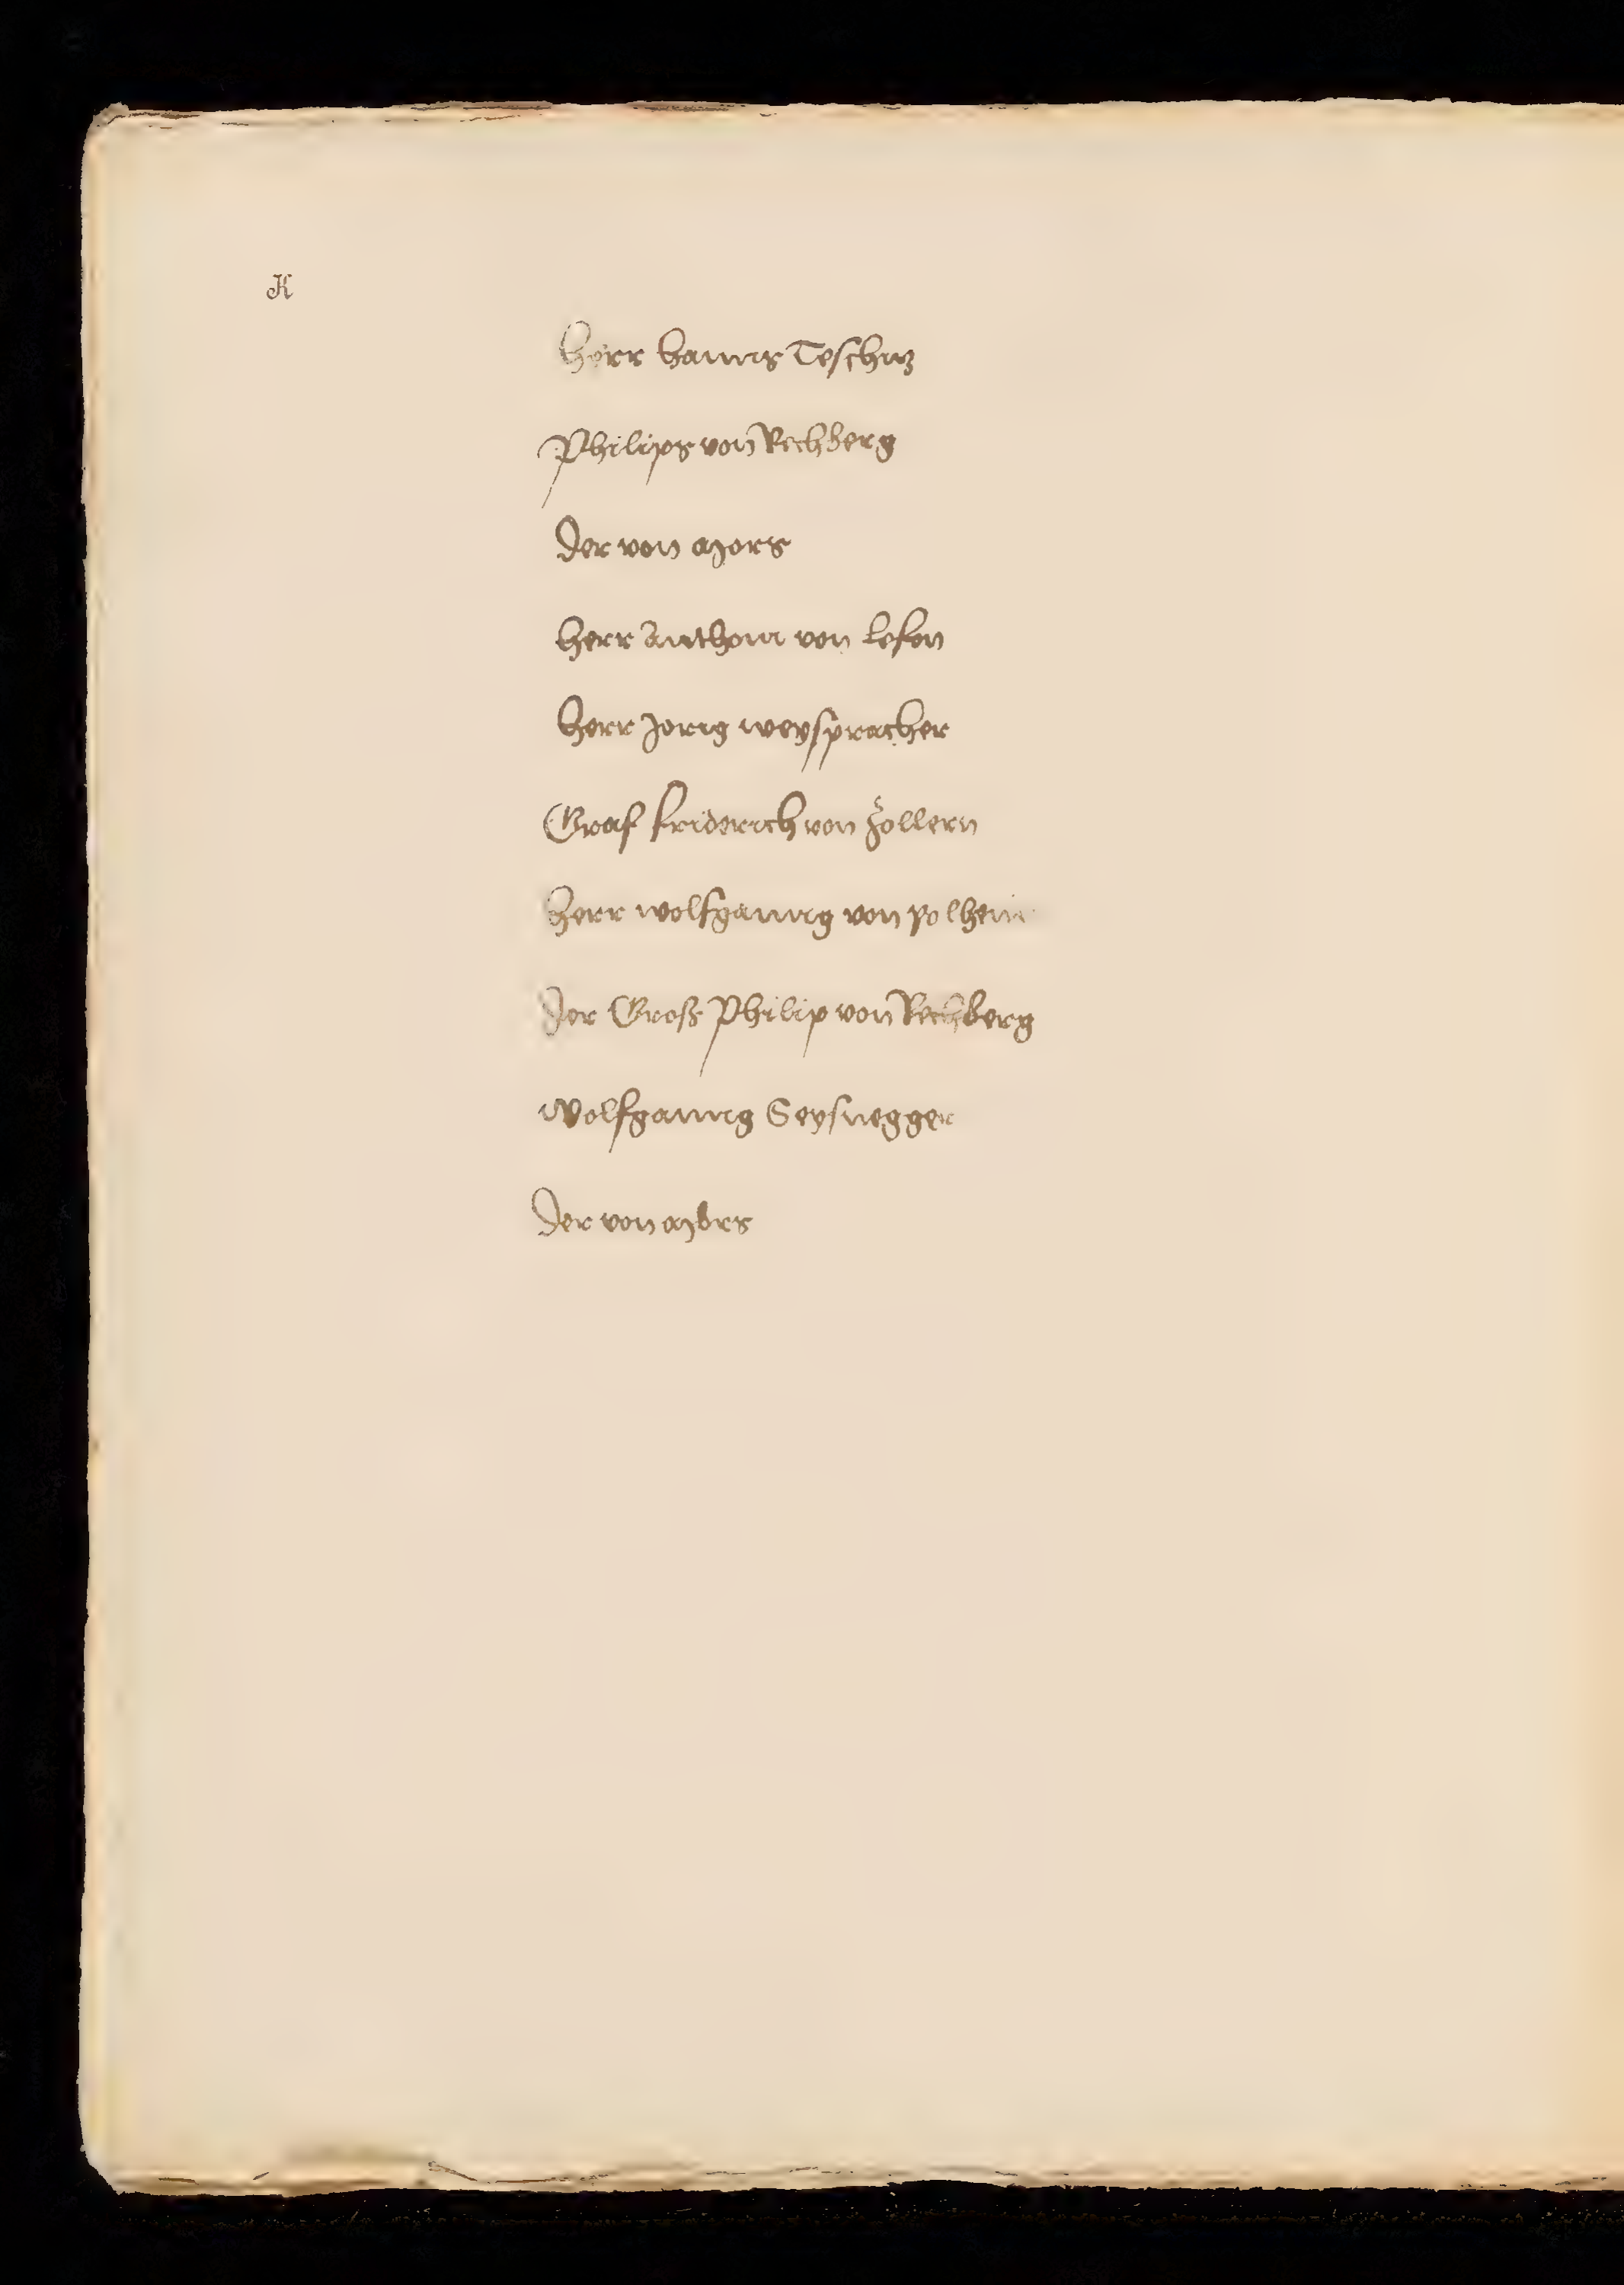 K
Herr Hanns Teschiz
Philips von Rechberg
Der von Mors
Herr Anthoni von Lefon
Herr Jorig weyspracher
Graf Friderich von Zollern
Herr wolfganng von polheim
Der Gross Philip von Rechberg
Wolfganng Seysnegger
Der von Mörs